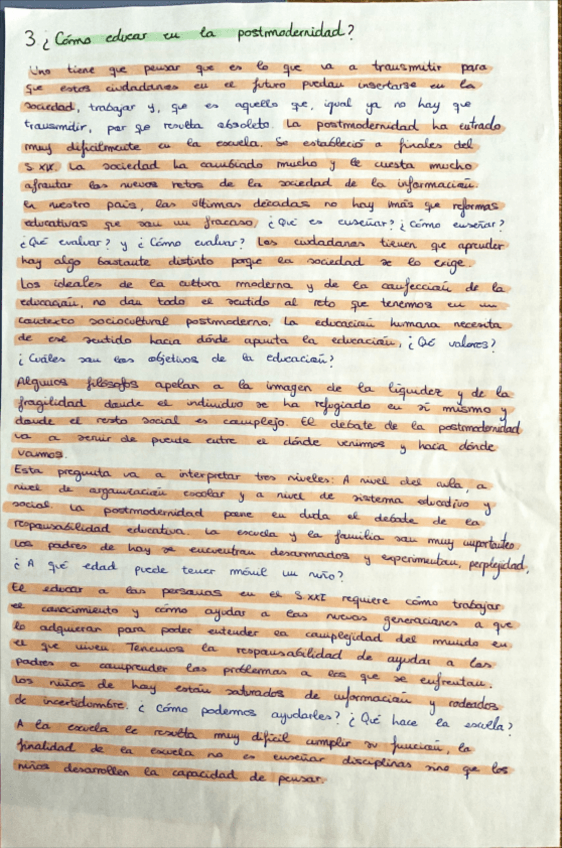 3 ¿Cómo educar en la postmodernidad?
Uno tiene que pensar que es lo que va a transmitir para
que estos ciudadanos en el futuro puedan insertarse en la
sociedad, trabajar y, que es aquello que, igual ya no hay que
transmitir, por qe resulta obsoleto. La postmodernidad ha entrado
muy dificilmente en la escuela. Se estableció a finales del
S XIX. La sociedad ha cambiado mucho y le cuesta mucho
afrontar los nuevos retos de la sociedad de la información.
En nuestro país, las últimas décadas no hay más que reformas
educativas que son un fracaso, ¿Qué es enseñar? ¿Cómo enseñar?
¿Qué evaluar? y ¿Cómo evaluar? Los ciudadanos tienen que aprender
hoy algo bastante distinto porque la sociedad se lo exige.
Los ideales de la cultura moderna y de la confección de la
educación, no dan todo el sentido al reto que tenemos en un
contexto sociocultural postmoderno. La educación humana necesita
de ese sentido hacia dónde apunta la educación, ¿Qé valores?
¿Cuáles son los objetivos de la educación?
Algunos filósofos apelan a la imagen de la liquidez y de la
fragilidad donde el individuo se ha refugiado en sí mismo y
donde el resto social es complejo. El debate de la postmodernidad
va a servir de puente entre el dónde venimos y hacia dónde
vamos.
Esta pregunta va a interpretar tres niveles: A nivel del aula, a
nivel de organización escolar y a nivel de sistema educativo y
social. La postmodernidad pone en duda el debate de la
responsabilidad educativa. La escuela y la familia son muy importantes
Los padres de hoy se encuentran desarmados y experimentan, perplejidad,
¿A qué edad puede tener móvil un niño?
El educar a las personas en el S.XXI requiere cómo trabajar
el conocimiento y cómo ayudar a las nuevas generaciones a que
lo adquieran para poder entender la complejidad del mundo en
el que viven. Tenemos la responsabilidad de ayudar a los
padres a comprender los problemas a los que se enfrentan.
Los niños de hoy están saturados de información y rodeados
de incertidumbre. ¿Cómo podemos ayudarles? ¿Qué hace la escuela?
A la escuela le resulta muy difícil cumplir su función, la
finalidad de la escuela no es enseñar disciplinas sino que los
niños desarrollen la capacidad de pensar.